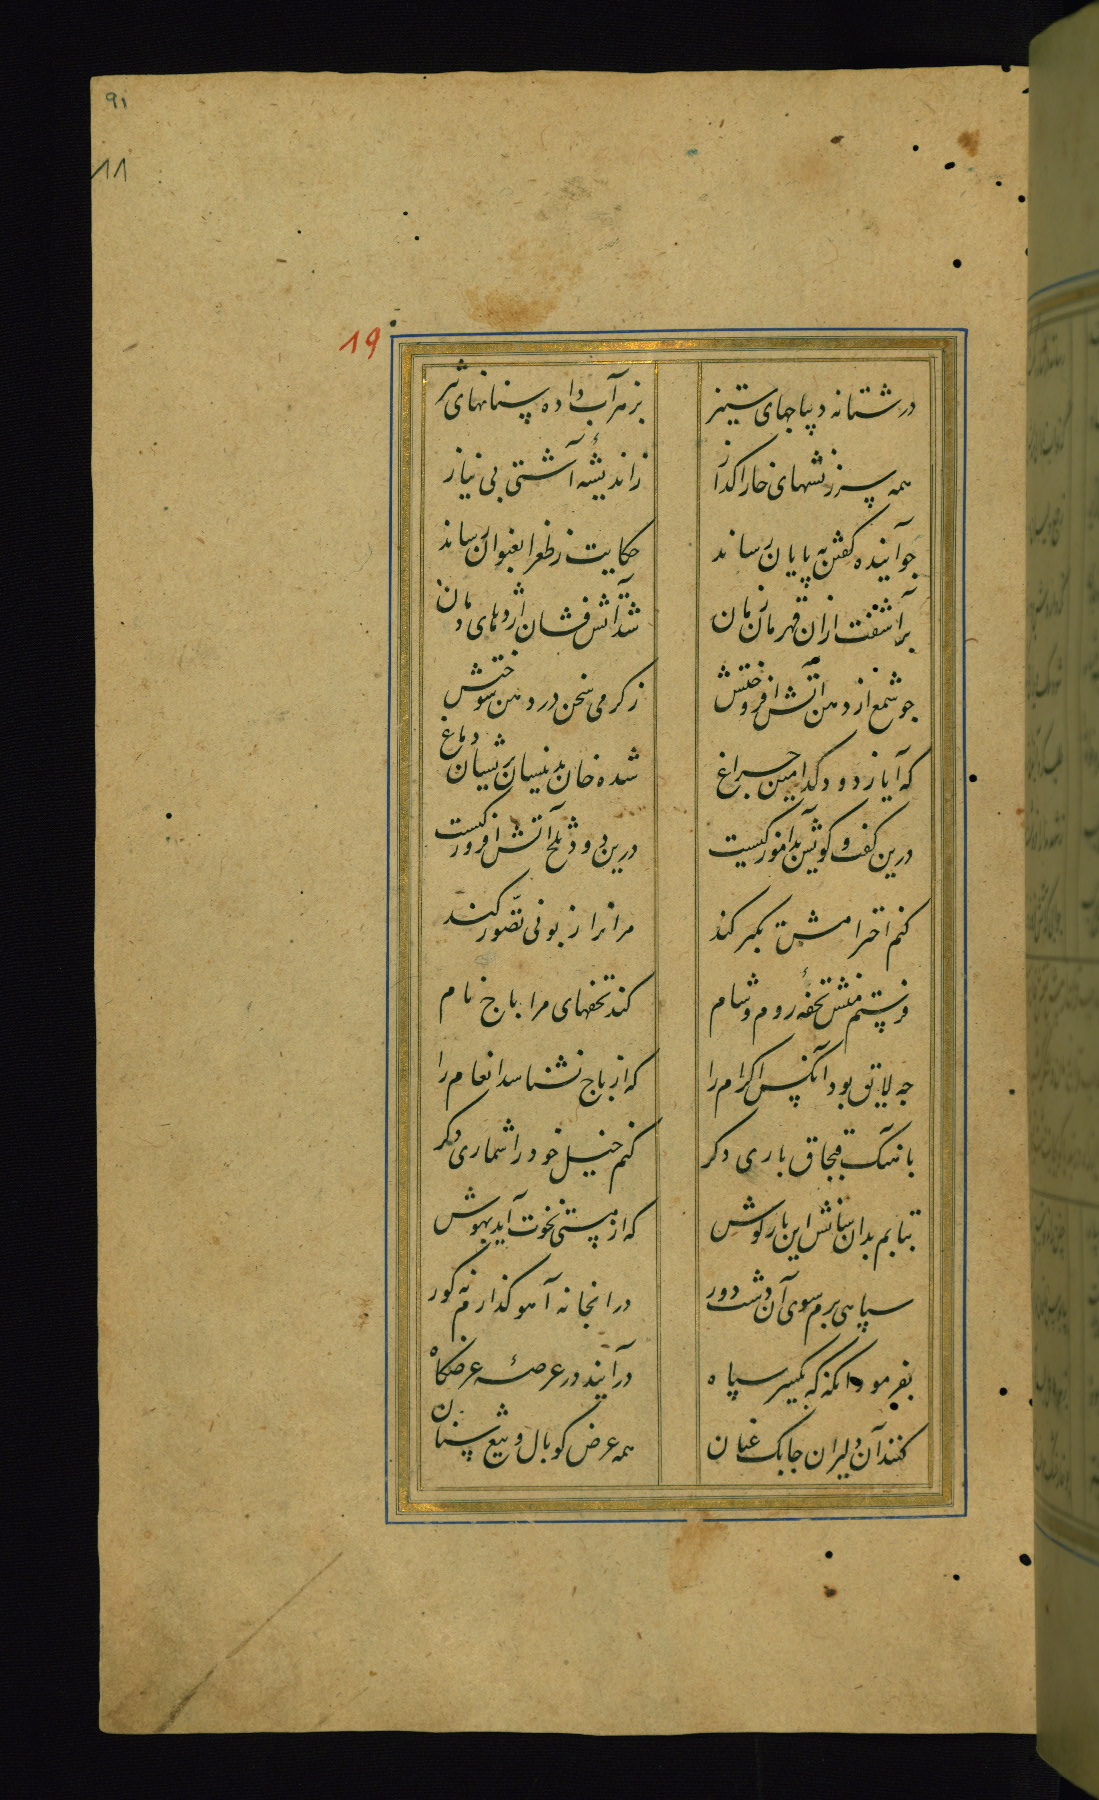 ٩١
٨٨
٨٩
درشتانه دیباجهای ستیز بزهر آب داده سنانهای تیز
همه سرزنشهای خارا کداز ز اندیشهٔ آشتی بی نیاز
جو اینده کفتن به پایان رساند حکایت ز طغرا بعنوان رساند
برآشفت ازان قهرمان زمان شد آتش فشان اژدهای دمان
جو شمع از دهن آتش افروختش ز کرمی سخن در دهن سوختش
که آیا ز دود کدامین جراغ شده خان بدینسان پریشان دماغ
درین کفت و کو تیش بدآموز کیست درین دود تلخ آتش افروز کیست
کنم احترامش تکبر کند مرا نرا زبونی تصور کند
فرستم منش تحفهٔ روم و شام کند تحفهای مرا باج نام
جه لایق بود آنکس اکرام را که از باج نشناسد انعام را
بانک قبجاق باری دکر کنم خیل خود را شماری دکر
بتابم بدان سانش این بار کوش که از مستی نخوت آید بهوش
سپاهی برم سوی آن دشت دور در انجا نه آهو کذارم نه کور
بفرمود انکه که یکسر سپاه درآیند در عرصهٔ عرضکاه
کنند آن دلیران جابک عنان همه عرض کوپال و تیغ سنان